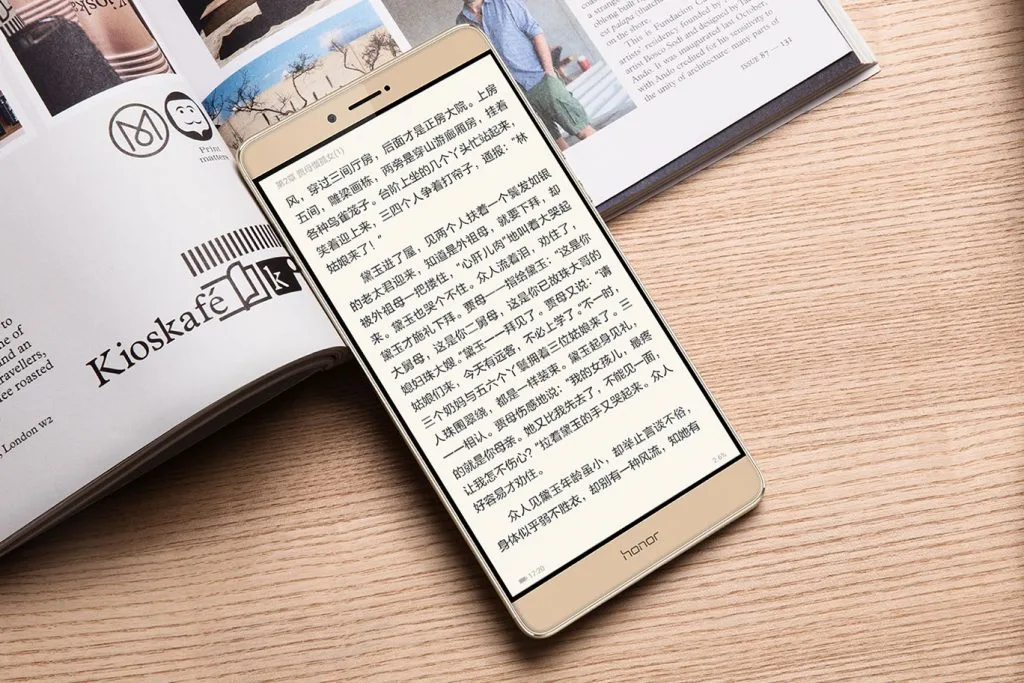 Kioskafé
k
Print
matters
to
ne of
and an
ravellers,
ee roasted
London W2
oblong built
on the shore.
This is Fundacion Ca
artists' residency founded by
artist Bosco Sodi and designed by Tadao
Ando. It was inaugurated last October,
with Ando credited for his sensitivity to
the unity of architecture many parts of
ISSUE 87 — 131
第2章 贾母惜孤女(1)
风,穿过三间厅房,后面才是正房大院。上房
五间,雕梁画栋,两旁是穿山游廊厢房,挂着
各种鸟雀笼子。台阶上坐的几个丫头忙站起来,
笑着迎上来,三四个人争着打帘子,通报:“林
姑娘来了!”
黛玉进了屋,见两个人扶着一个鬓发如银
的老太君迎来,知道是外祖母,就要下拜,却
被外祖母一把搂住,“心肝儿肉”地叫着大哭起
来。黛玉也哭个不住。众人流着泪,劝住了,
黛玉才施礼下拜。贾母一一指给黛玉:“这是你
大舅母,这是你二舅母,这是你已故珠大哥的
媳妇珠大嫂。”黛玉一一拜见了。贾母又说:“请
姑娘们来,今天有远客,不必上学了。”不一时,
三个奶妈与五六个丫鬟拥着三位姑娘来了。三
人珠围翠绕,都是一样装束。黛玉起身见礼,
一一相认。贾母伤感地说:“我的女孩儿,最疼
的就是你母亲。她又比我先去了,不能见一面,
让我怎不伤心?”拉着黛玉的手又哭起来。众人
好容易才劝住。
众人见黛玉年龄虽小,却举止言谈不俗,
身体似乎弱不胜衣,却别有一种风流,知她有
17:20
2.6%
honor